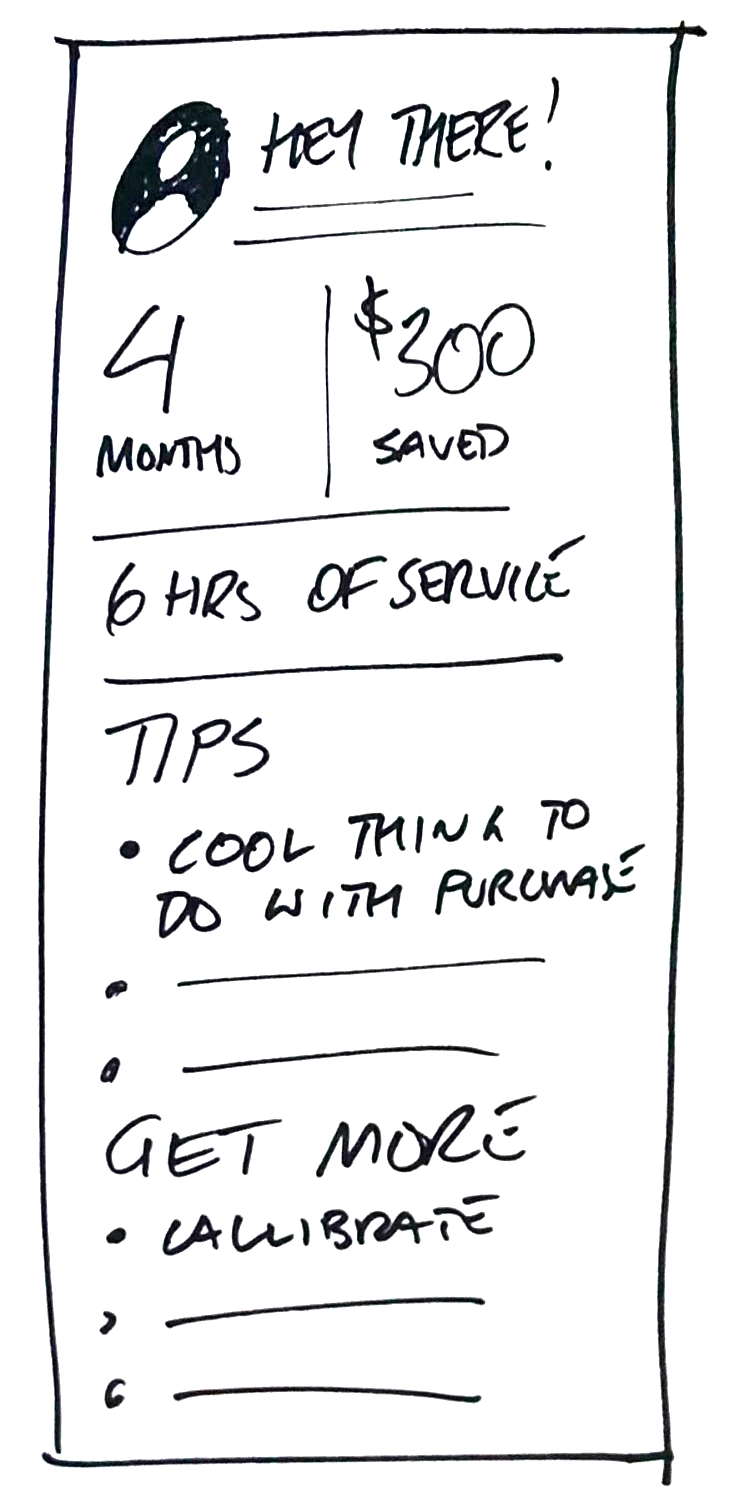 HEY THERE!
4
MONTHS
$300
SAVED
6 HRS OF SERVICE
TIPS
• COOL THING TO
DO WITH PURCHASE
•
•
GET MORE
• CALLIBRATE
•
•